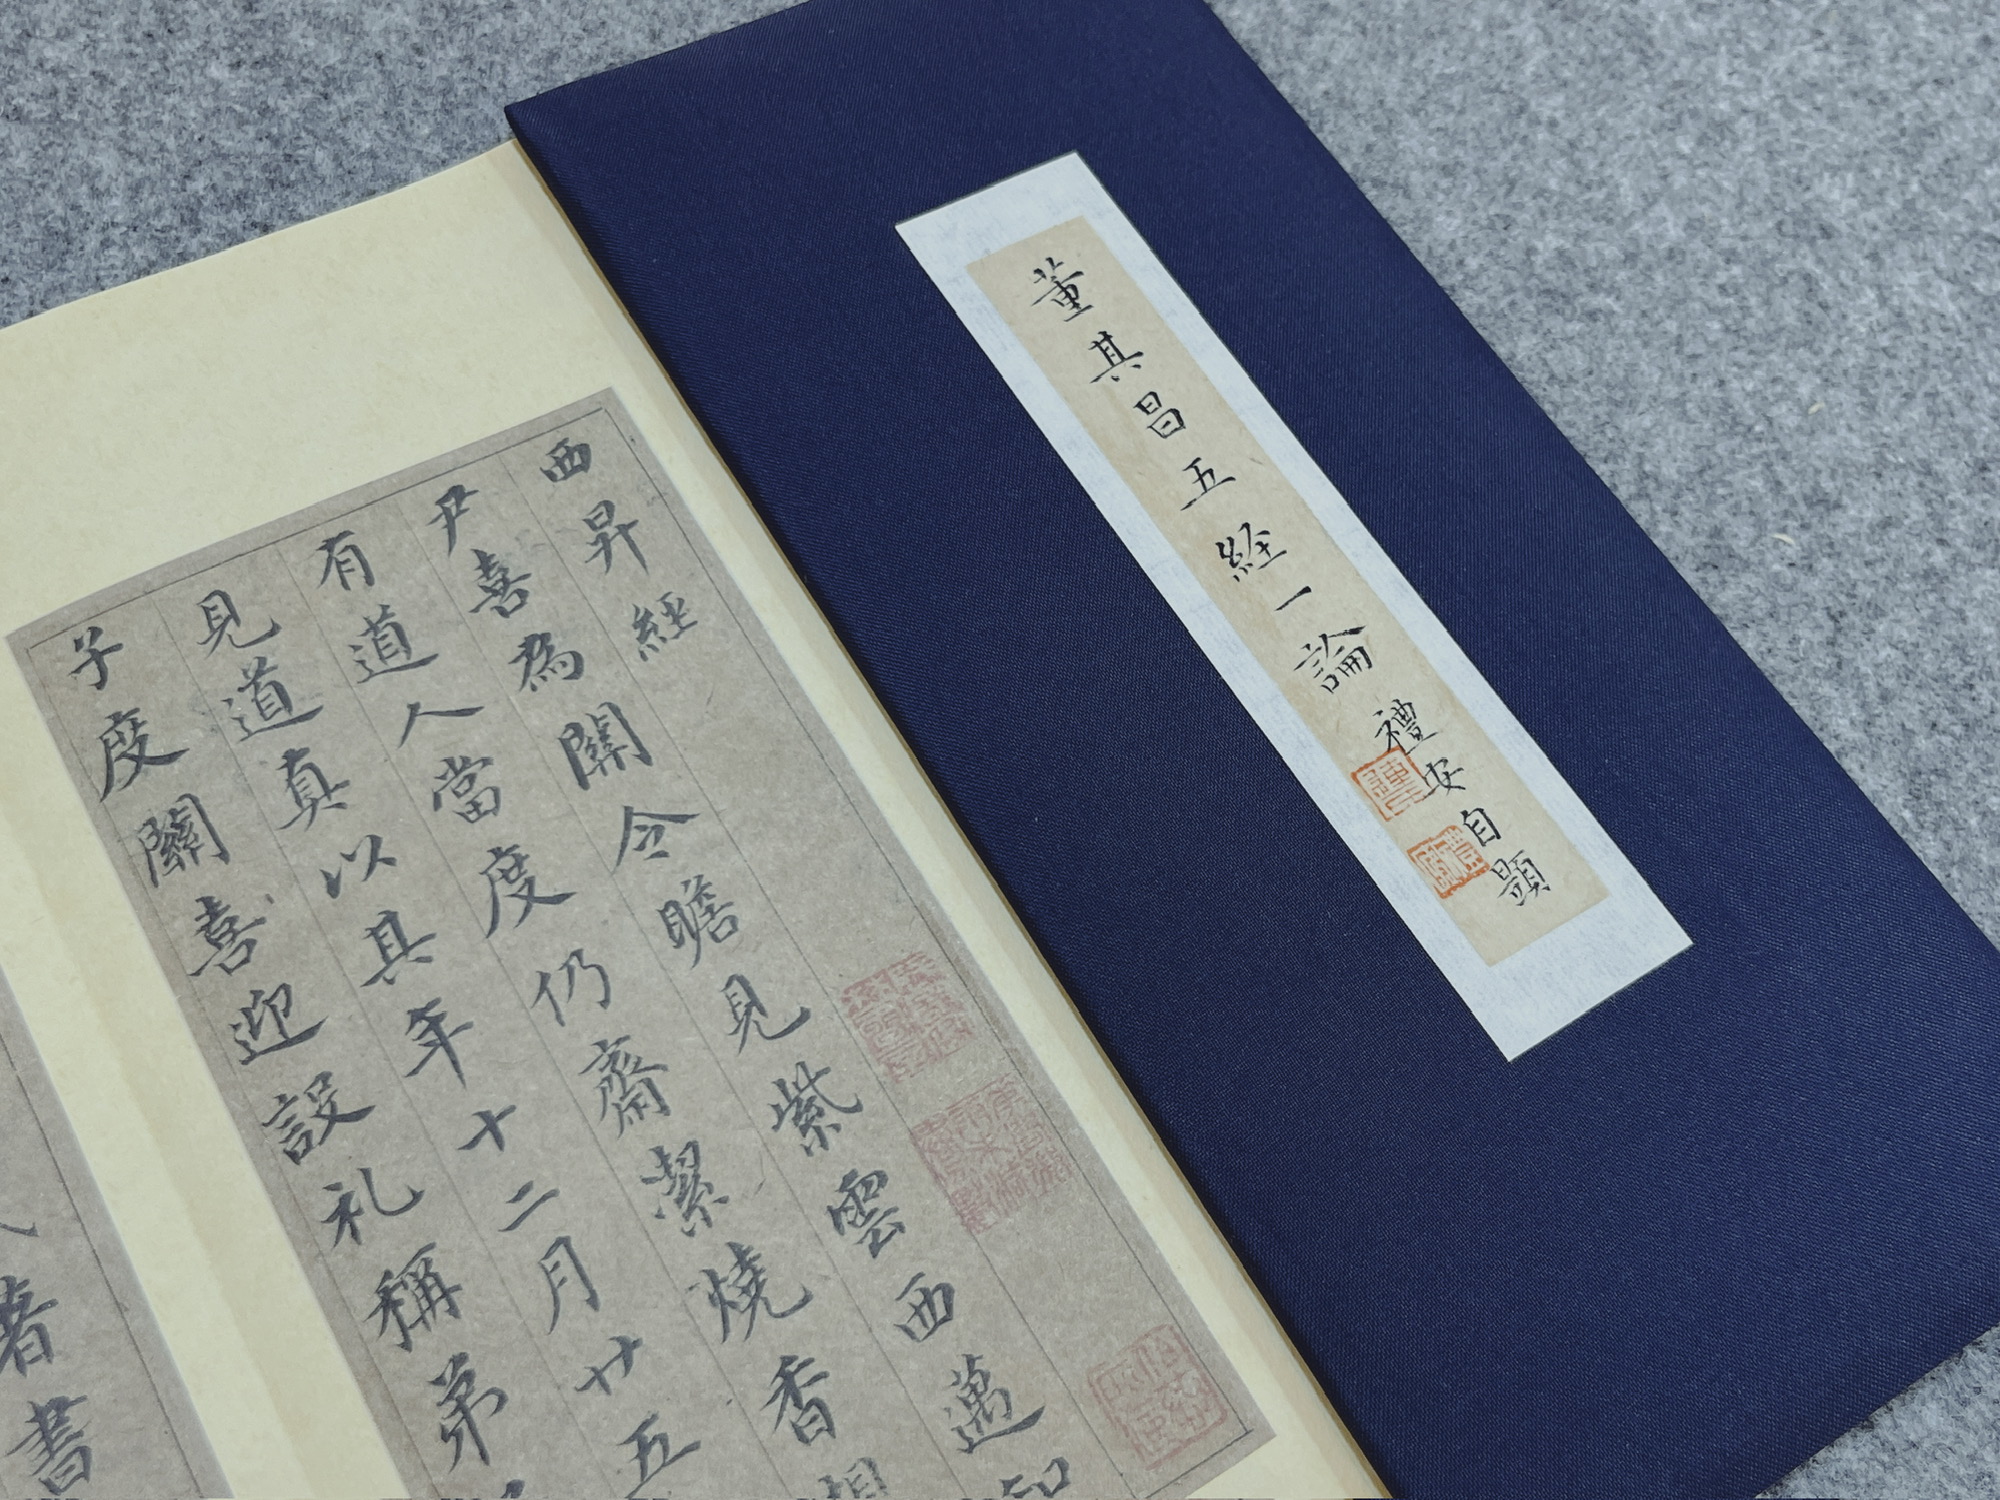 董其昌五経一論
禮安自題
西昇經
尹喜為關令瞻見紫雲西邁知
有道人當度仍齋潔燒香想
見道真以其年十二月廿五
子度關喜迎設礼稱弟
著書